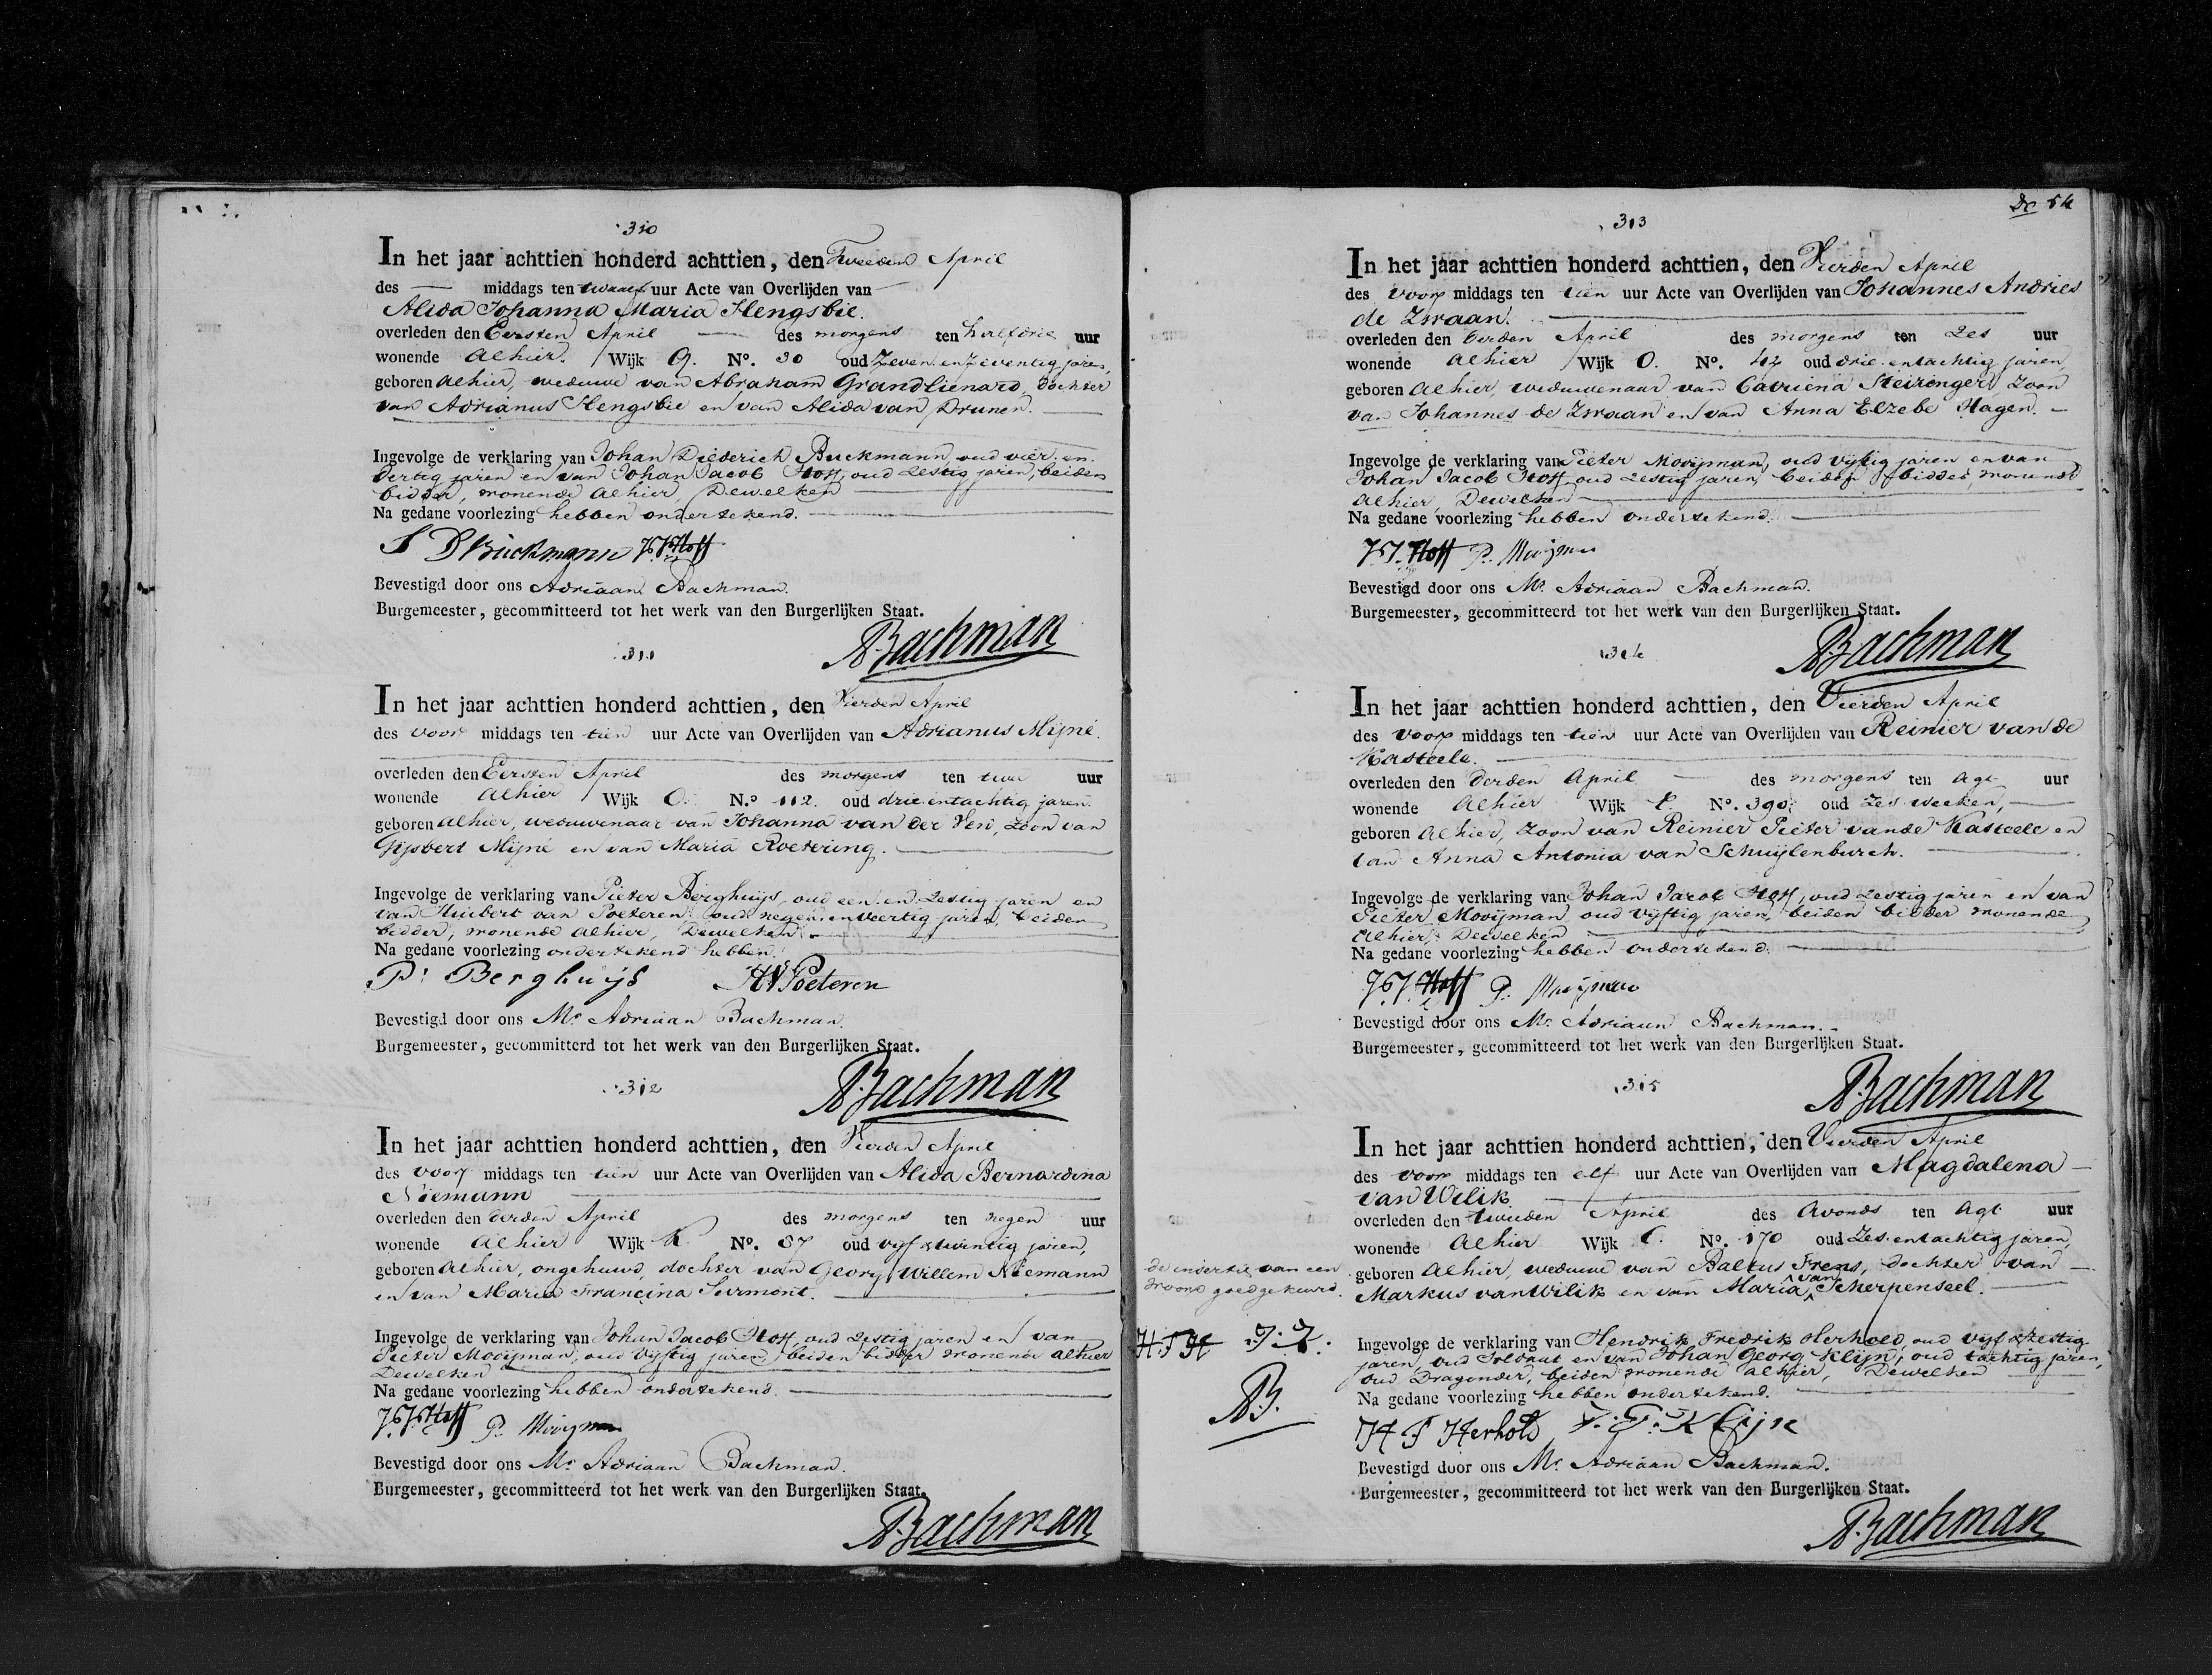 310
In het jaar achttien honderd achttien, den Tweeden April
des middags ten twaalf uur Acte van Overlijden van
Alida Johanna Maria Hengsbie.
overleden den Eersten April des morgens ten half drie uur
wonende Alhier. Wijk Q. No. 30 oud Zeven en Zeventig jaren,
geboren Alhier, weduwe van Abraham Grandlienard, dochter
van Adrianus Hengsbie en van Alida van Drunen.
Ingevolge de verklaring van Johan Diederich Buckmann oud vier en
dertig jaren en van Johan Jacob Hoff, oud Zestig jaren, beiden
bidder, wonende Alhier, Dewelken
Na gedane voorlezing hebben ondertekend.
J D Buckmann J.J. Hoff
Bevestigd door ons Adriaan Bachman.
Burgemeester, gecommitteerd tot het werk van den Burgerlijken Staat.
ABachman
311
In het jaar achttien honderd achttien, den Vierden April
des voor middags ten tien uur Acte van Overlijden van Adrianus Mijné.
overleden den Eersten April des morgens ten twee uur
wonende Alhier Wijk O. No. 112. oud drie entachtig jaren.
geboren Alhier, weduwenaar van Johanna van der Ven, Zoon van
Gijsbert Mijné en van Maria Roetering.
Ingevolge de verklaring van Pieter Berghuijs, oud een en Zestig jaren en
van Huibert van Poeteren oud negen en veertig jaren, beiden
bidder, wonende Alhier, Dewelken
Na gedane voorlezing ondertekend hebben.
P: Berghuijs HVPoeteren
Bevestigd door ons Mr. Adriaan Bachman.
Burgemeester, gecommitterd tot het werk van den Burgerlijken Staat.
312
ABachman
In het jaar achttien honderd achttien, den Vierden April
des voor middags ten tien uur Acte van Overlijden van Alida Bernardina
Niemann
overleden den derden April des morgens ten negen uur
wonende Alhier Wijk K. No. 87 oud vijf & twintig jaren,
geboren Alhier, ongehuwd, dochter van Georg Willem Niemann
en van Maria Francina Surmont.
Ingevolge de verklaring van Johan Jacob Hoff, oud Zestig jaren en van
Pieter Mooijman, oud Vijftig jaren, beiden bidder wonende alhier
Dewelken
Na gedane voorlezing hebben ondertekend.
J.J. Hoff P. Mooijman
Bevestigd door ons Mr. Adriaan Bachman.
Burgemeester, gecommitteerd tot het werk van den Burgerlijken Staat.
ABachman
54
313
In het jaar achttien honderd achttien, den Vierden April
des voor middags ten tien uur Acte van Overlijden van Johannes Andries
de Zwaan.
overleden den derden April des morgens ten Zes uur
wonende Alhier Wijk O. No. 42 oud drie entachtig jaren,
geboren Alhier, weduwenaar van Catriena Steizenger, Zoon
van Johannes de Zwaan en van Anna Elzebe Hagen.
Ingevolge de verklaring van Pieter Mooijman, oud vijftig jaren en van
Johan Jacob Hoff oud Zestig jaren, beiden bidder wonende
Alhier, Dewelken
Na gedane voorlezing hebben ondertekend.
J.J. Hoff P. Mooijman
Bevestigd door ons Mr. Adriaan Bachman.
Burgemeester, gecommitteerd tot het werk van den Burgerlijken Staat.
314
ABachman
In het jaar achttien honderd achttien, den Vierden April
des voor middags ten tien uur Acte van Overlijden van Reinier van de
Kasteele.
overleden den derden April des morgens ten agt uur
wonende Alhier Wijk No. 390. oud Zes weeken,
geboren Alhier, Zoon van Reinier Pieter vande Kasteele en
van Anna Antonia van Schuijlenburch.
Ingevolge de verklaring van Johan Jacob Hoff, oud Zestig jaren en van
Pieter Mooijman oud Vijftig jaren, beiden bidder wonende
Alhier, Dewelken
Na gedane voorlezing hebben ondertekend.
J.J. Hoff P. Mooijman
Bevestigd door ons Mr. Adriaan Bachman.
Burgemeester, gecommitteerd tot het werk van den Burgerlijken Staat.
315
ABachman
In het jaar achttien honderd achttien, den Vierden April
des voor middags ten elf uur Acte van Overlijden van Magdalena
van Wilik
overleden den tweeden April des Avonds ten Agt uur
wonende Alhier Wijk C. No. 170 oud Zes entachtig jaren,
geboren Alhier, weduwe van Baltus Frens, dochter van
Markus van Wilik en van Maria van Scherpenseel.
de insertie van een
woord goedgekeurd.
H.F H J:K:
AB.
Ingevolge de verklaring van Hendrik Fredrik Herhold, oud vijf & Zestig
jaren, oud Soldaat en van Johan Georg Klijn, oud tachtig jaren,
oud Dragonder, beiden wonende Alhier, Dewelken
Na gedane voorlezing hebben ondertekend.
H F Herhold J. G. Klijn
Bevestigd door ons Mr. Adriaan Bachman.
Burgemeester, gecommitteerd tot het werk van den Burgerlijken Staat.
ABachman